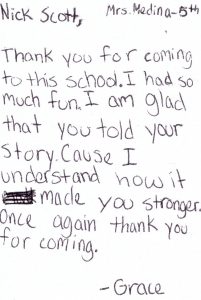 Nick Scott, Mrs. Medina-5th
Thank you for coming
to this school. I had so
much fun. I am glad
that you told your
story. Cause I
understand how it
made you stronger.
Once again thank you
for coming.
-Grace